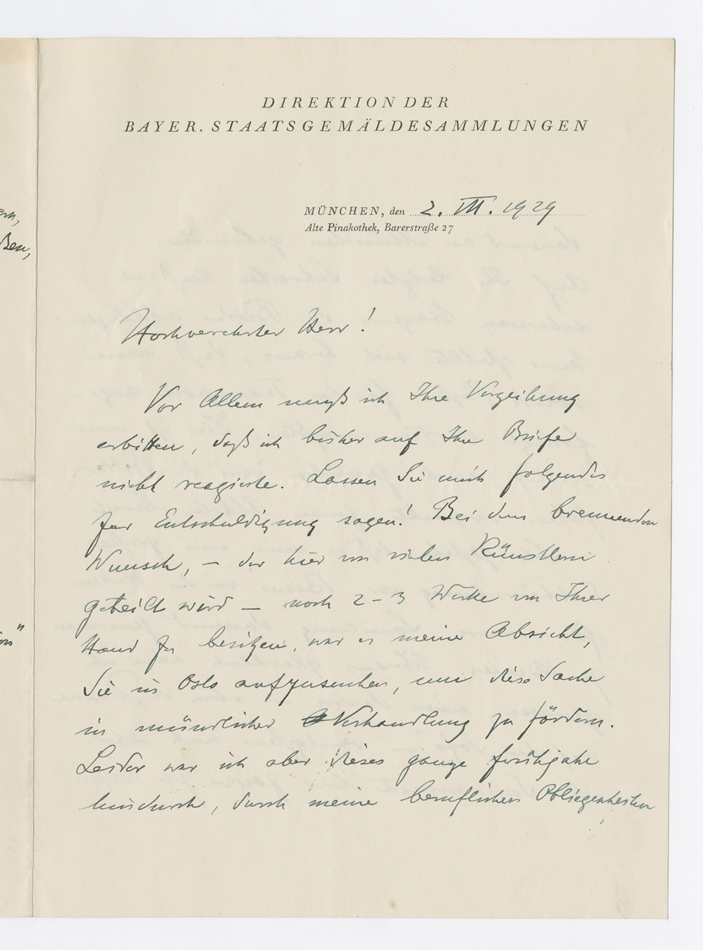 DIREKTION DER
BAYER. STAATSGEMÄLDESAMMLUNGEN
MÜNCHEN, den 2. VII. 1929
Alte Pinakothek, Barerstraße 27
Hochverehrter Herr!
Vor Allem muß ich Ihre Verzeihung
erbitten, daß ich bisher auf Ihre Briefe
nicht reagierte. Lassen Sie mich folgendes
zur Entschuldigung sagen! Bei dem brennenden
Wunsch, – der hier von vielen Künstlern
geteilt wird – noch 2-3 Werke von Ihrer
Hand zu besitzen, war es meine Absicht,
Sie in Oslo aufzusuchen, um diese Sache
in mündlicher Verhandlung zu fördern.
Leider war ich aber dieses ganze Frühjahr
hindurch, durch meine beruflichen Obliegenheiten